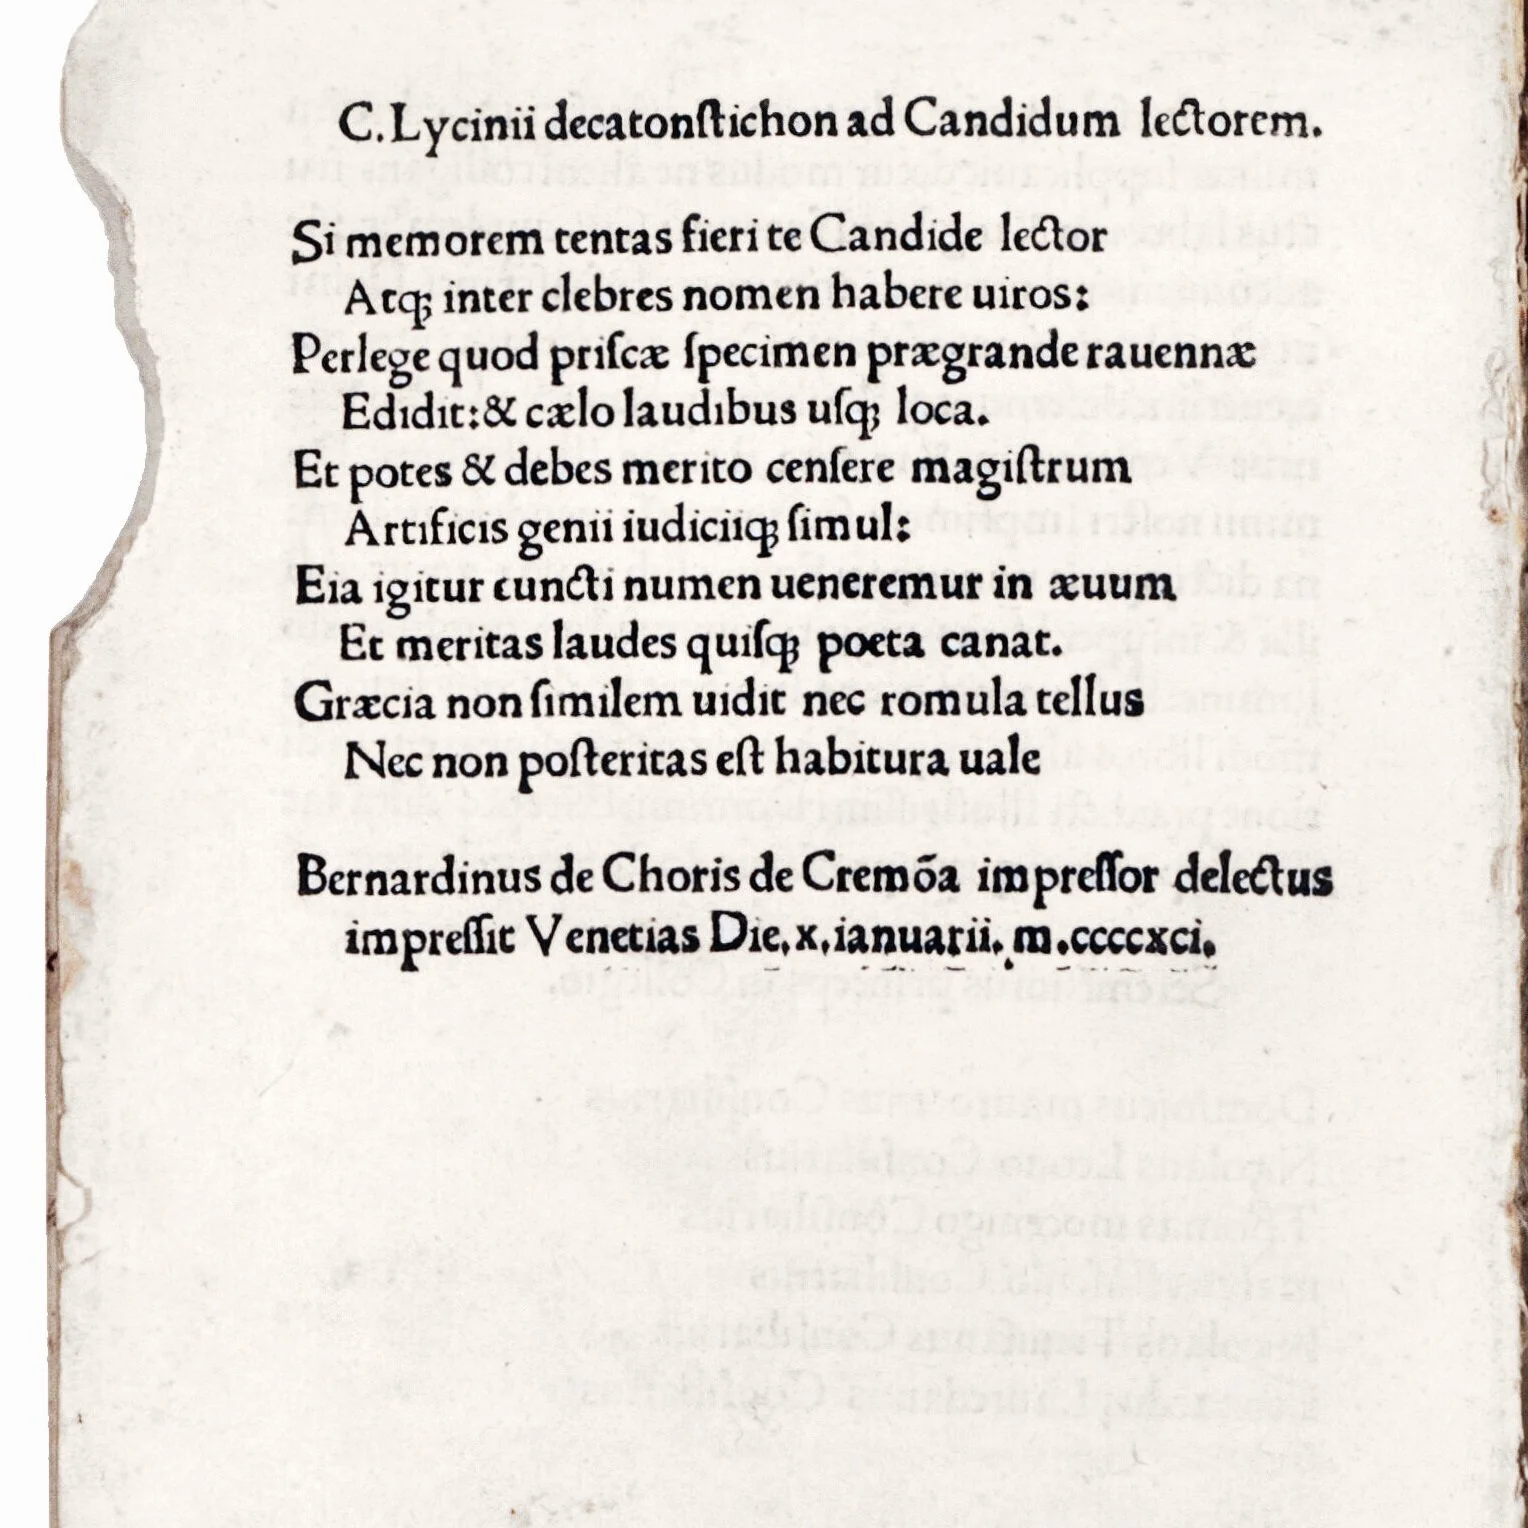 C.Lycinii decatonſtichon ad Candidum lectorem.
Si memorem tentas fieri te Candide lector
Atqꝫ inter clebres nomen habere uiros:
Perlege quod priſcæ ſpecimen prægrande rauennæ
Edidit:& cælo laudibus uſqꝫ loca.
Et potes & debes merito cenſere magiſtrum
Artificis genii iudiciiqꝫ ſimul:
Eia igitur cuncti numen ueneremur in æuum
Et meritas laudes quiſqꝫ poeta canat.
Græcia non ſimilem uidit nec romula tellus
Nec non poſteritas eſt habitura uale
Bernardinus de Choris de Cremōa impreſſor delectus
impreſſit Venetias Die.x.ianuarii.m.ccccxci.